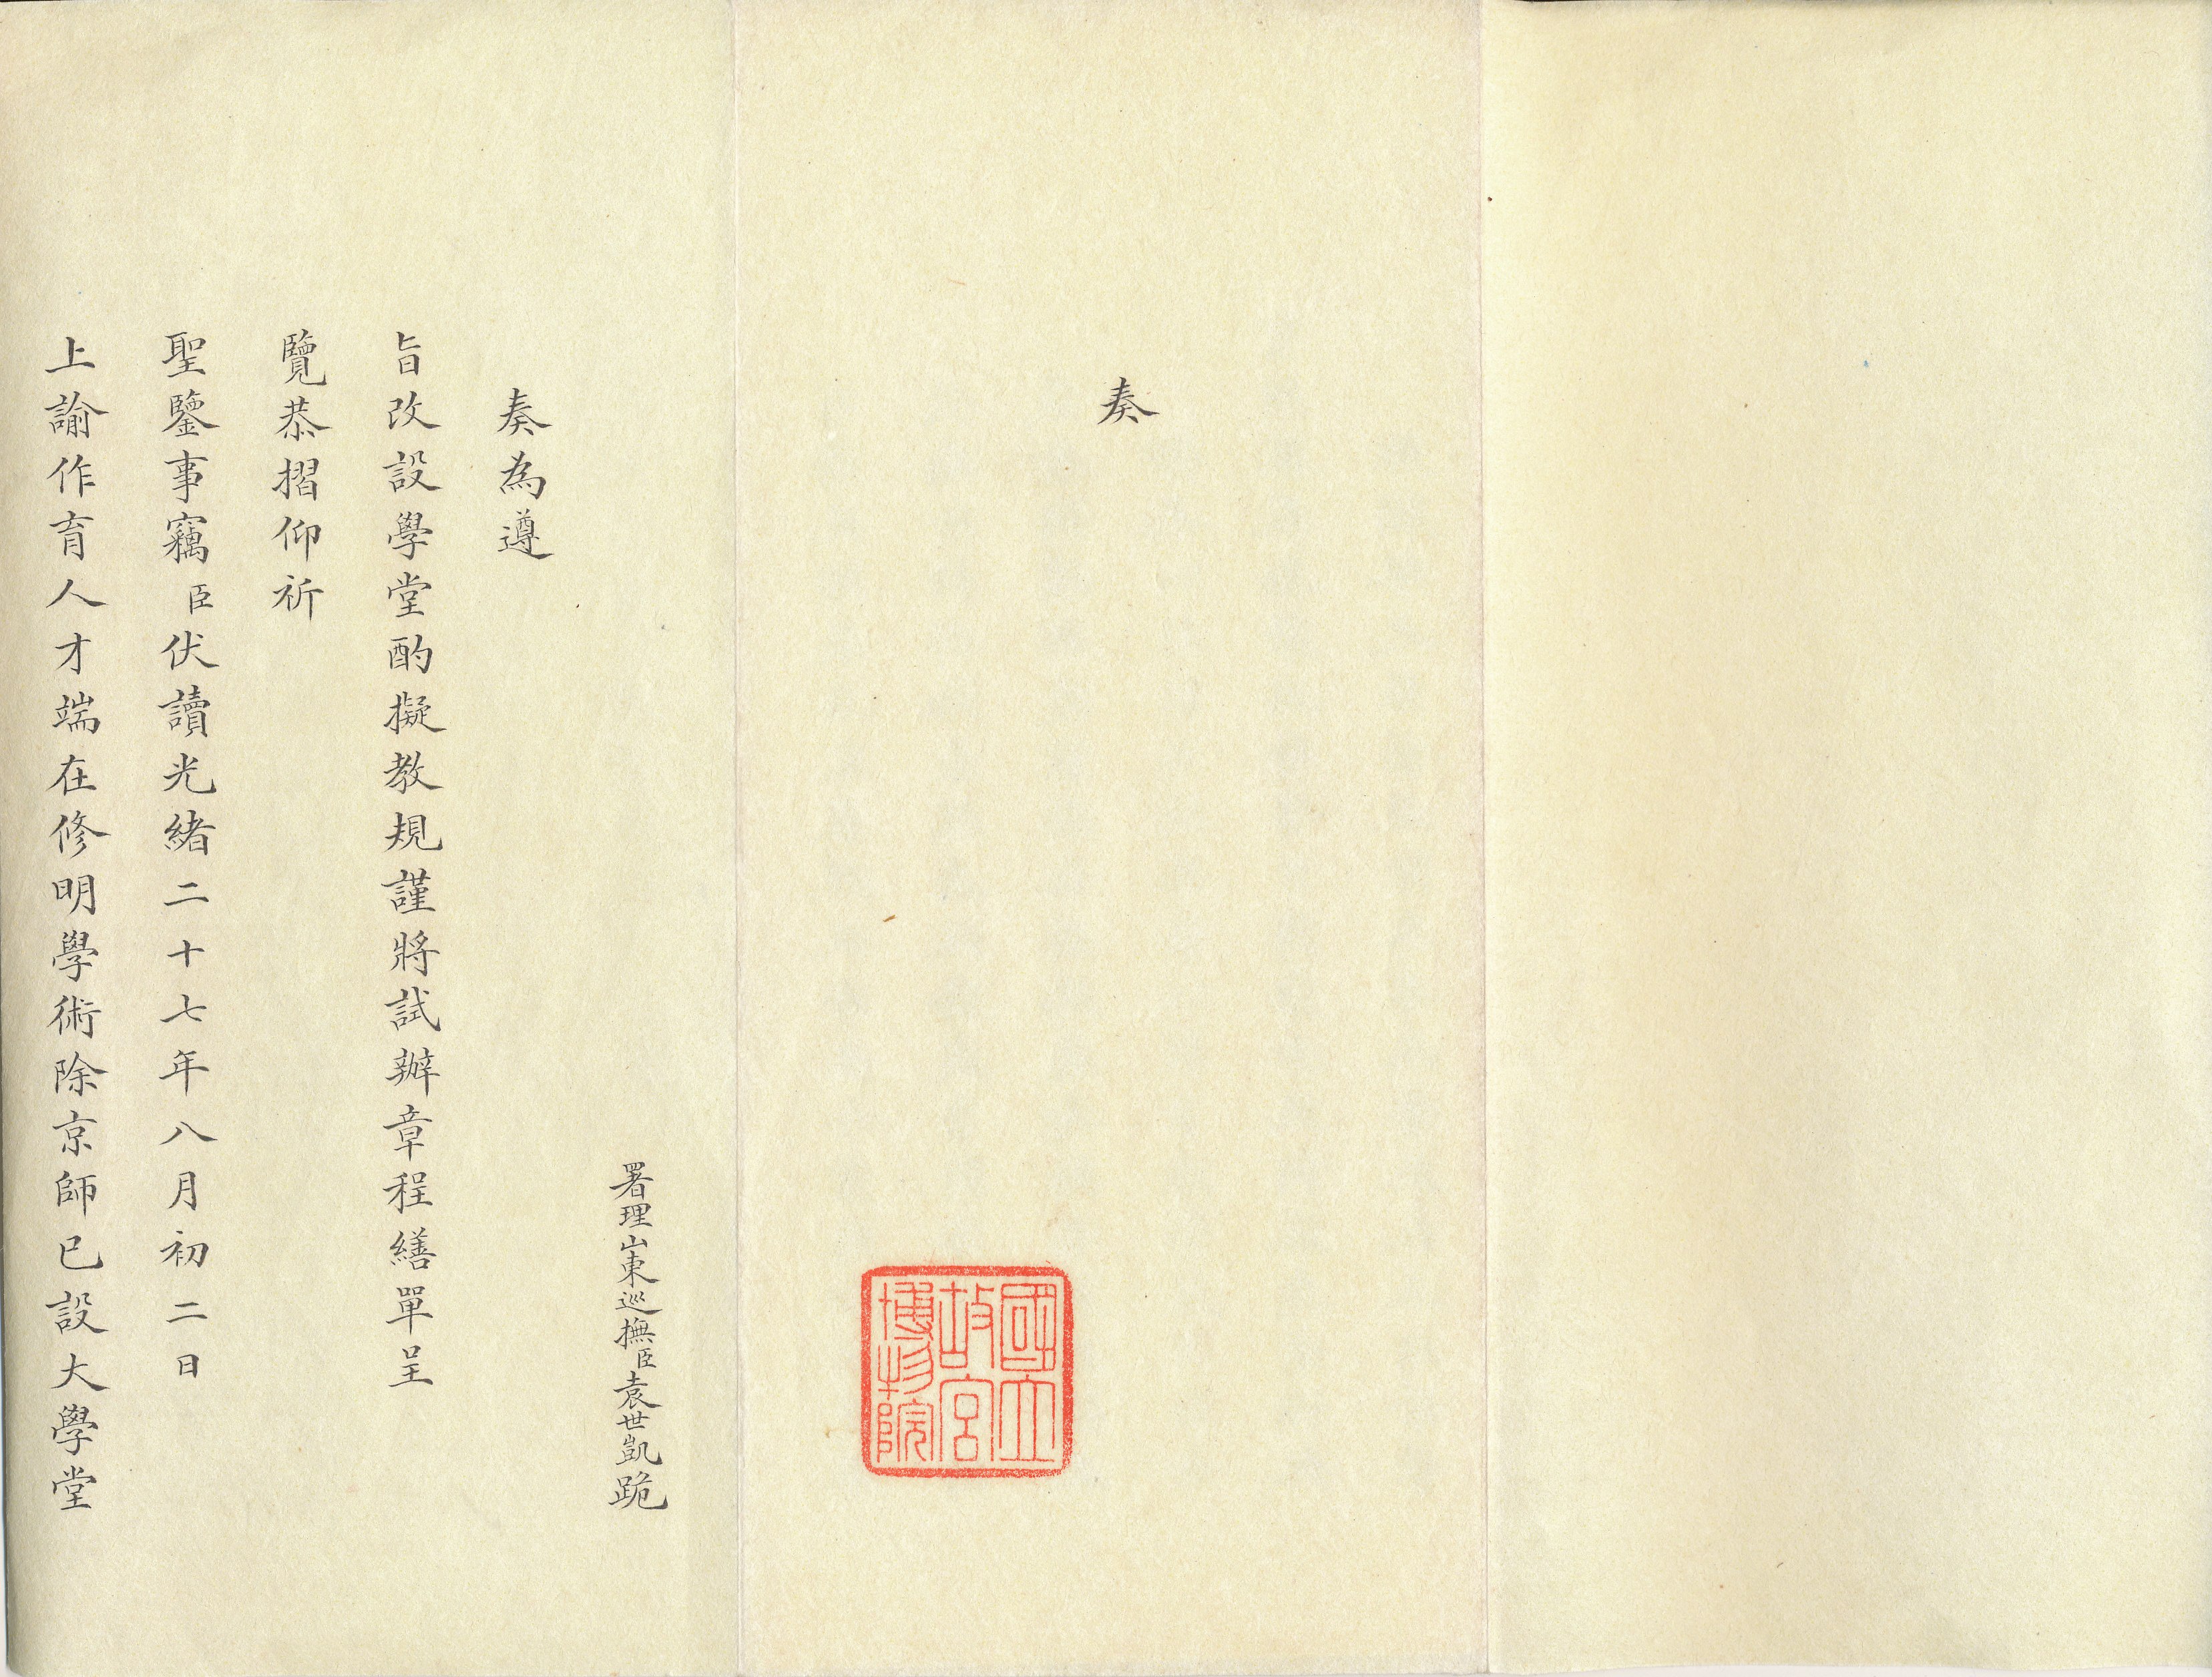 奏
國立
故宮
博物院
署理山東巡撫臣袁世凱跪
奏為遵
旨改設學堂酌擬教規謹將試辦章程繕單呈
覽恭摺仰祈
聖鑒事竊臣伏讀光緒二十七年八月初二日
上諭作育人才端在修明學術除京師已設大學堂